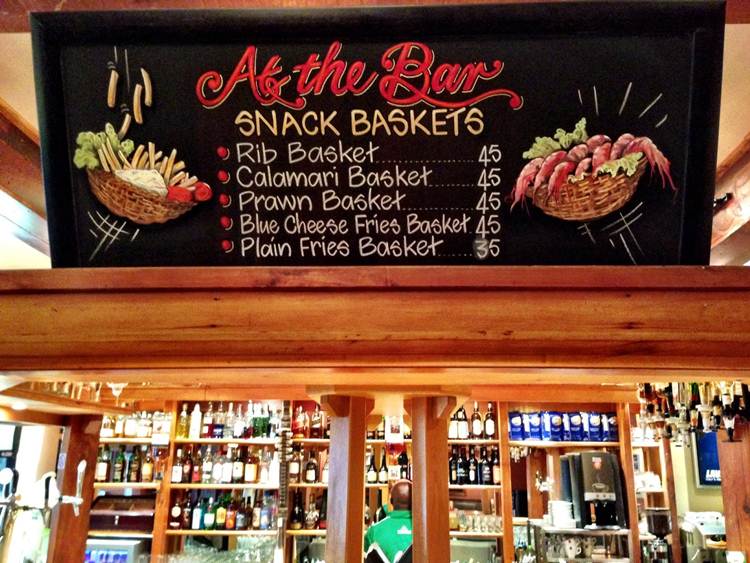 At the Bar
SNACK BASKETS
Rib Basket.......45
Calamari Basket.......45
Prawn Basket.......45
Blue Cheese Fries Basket.45
Plain Fries Basket.......35